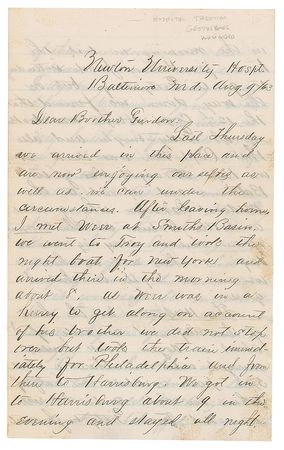 HOSPITAL
GETTYSBURG
WOUNDED
Newton University Hospt.
Baltimore Md. Aug 9/63
Dear Brother Gurdon.
Last Thursday
we arrived in this place and
are now enjoying our selves as
well as we can under the
circumstances. After leaving home
I met Worr at Smiths Basin,
we went to Troy and took the
night boat for New York and
arrived there in the morning
about 8. as Worr was in a
hurry to get along on account
of his brother we did not stop
over but took the train immed-
iately for Philadelphia and from
there to Harrisburg. We got in
to Harrisburg about 9 in the
evening and stayed all night